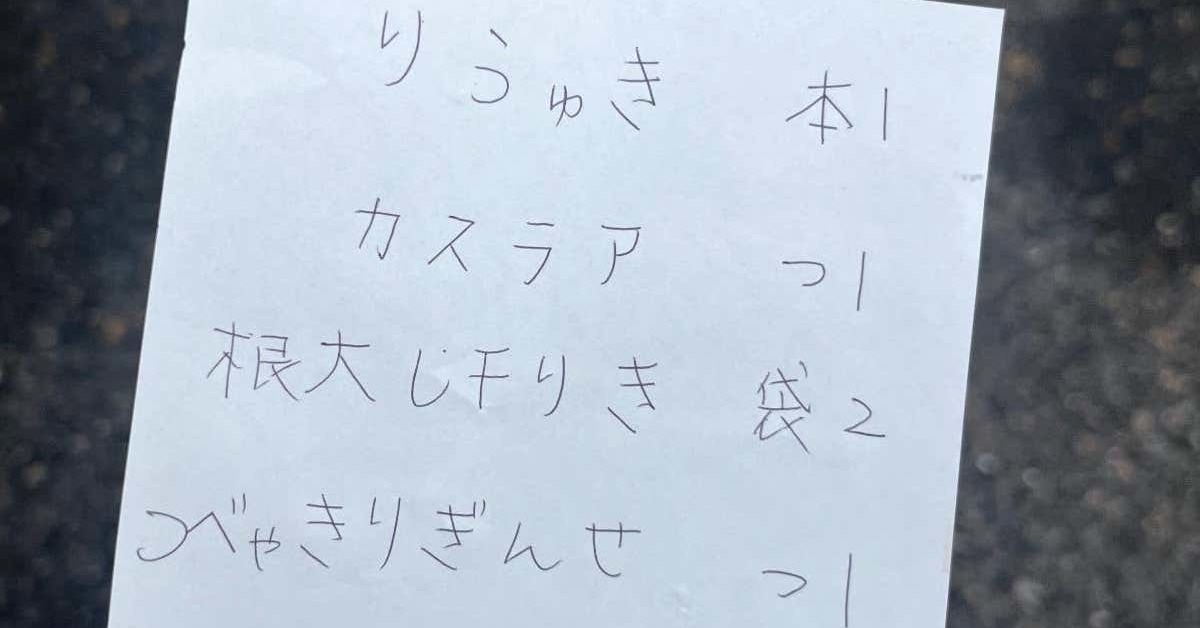 りうゅき 本1
カスラア つ1
根大じ干りき 袋2
つべゃきりぎんせ つ1